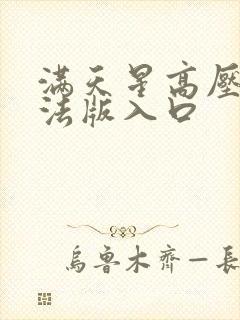 滿天星高壓
法版入口
烏魯木齊—長